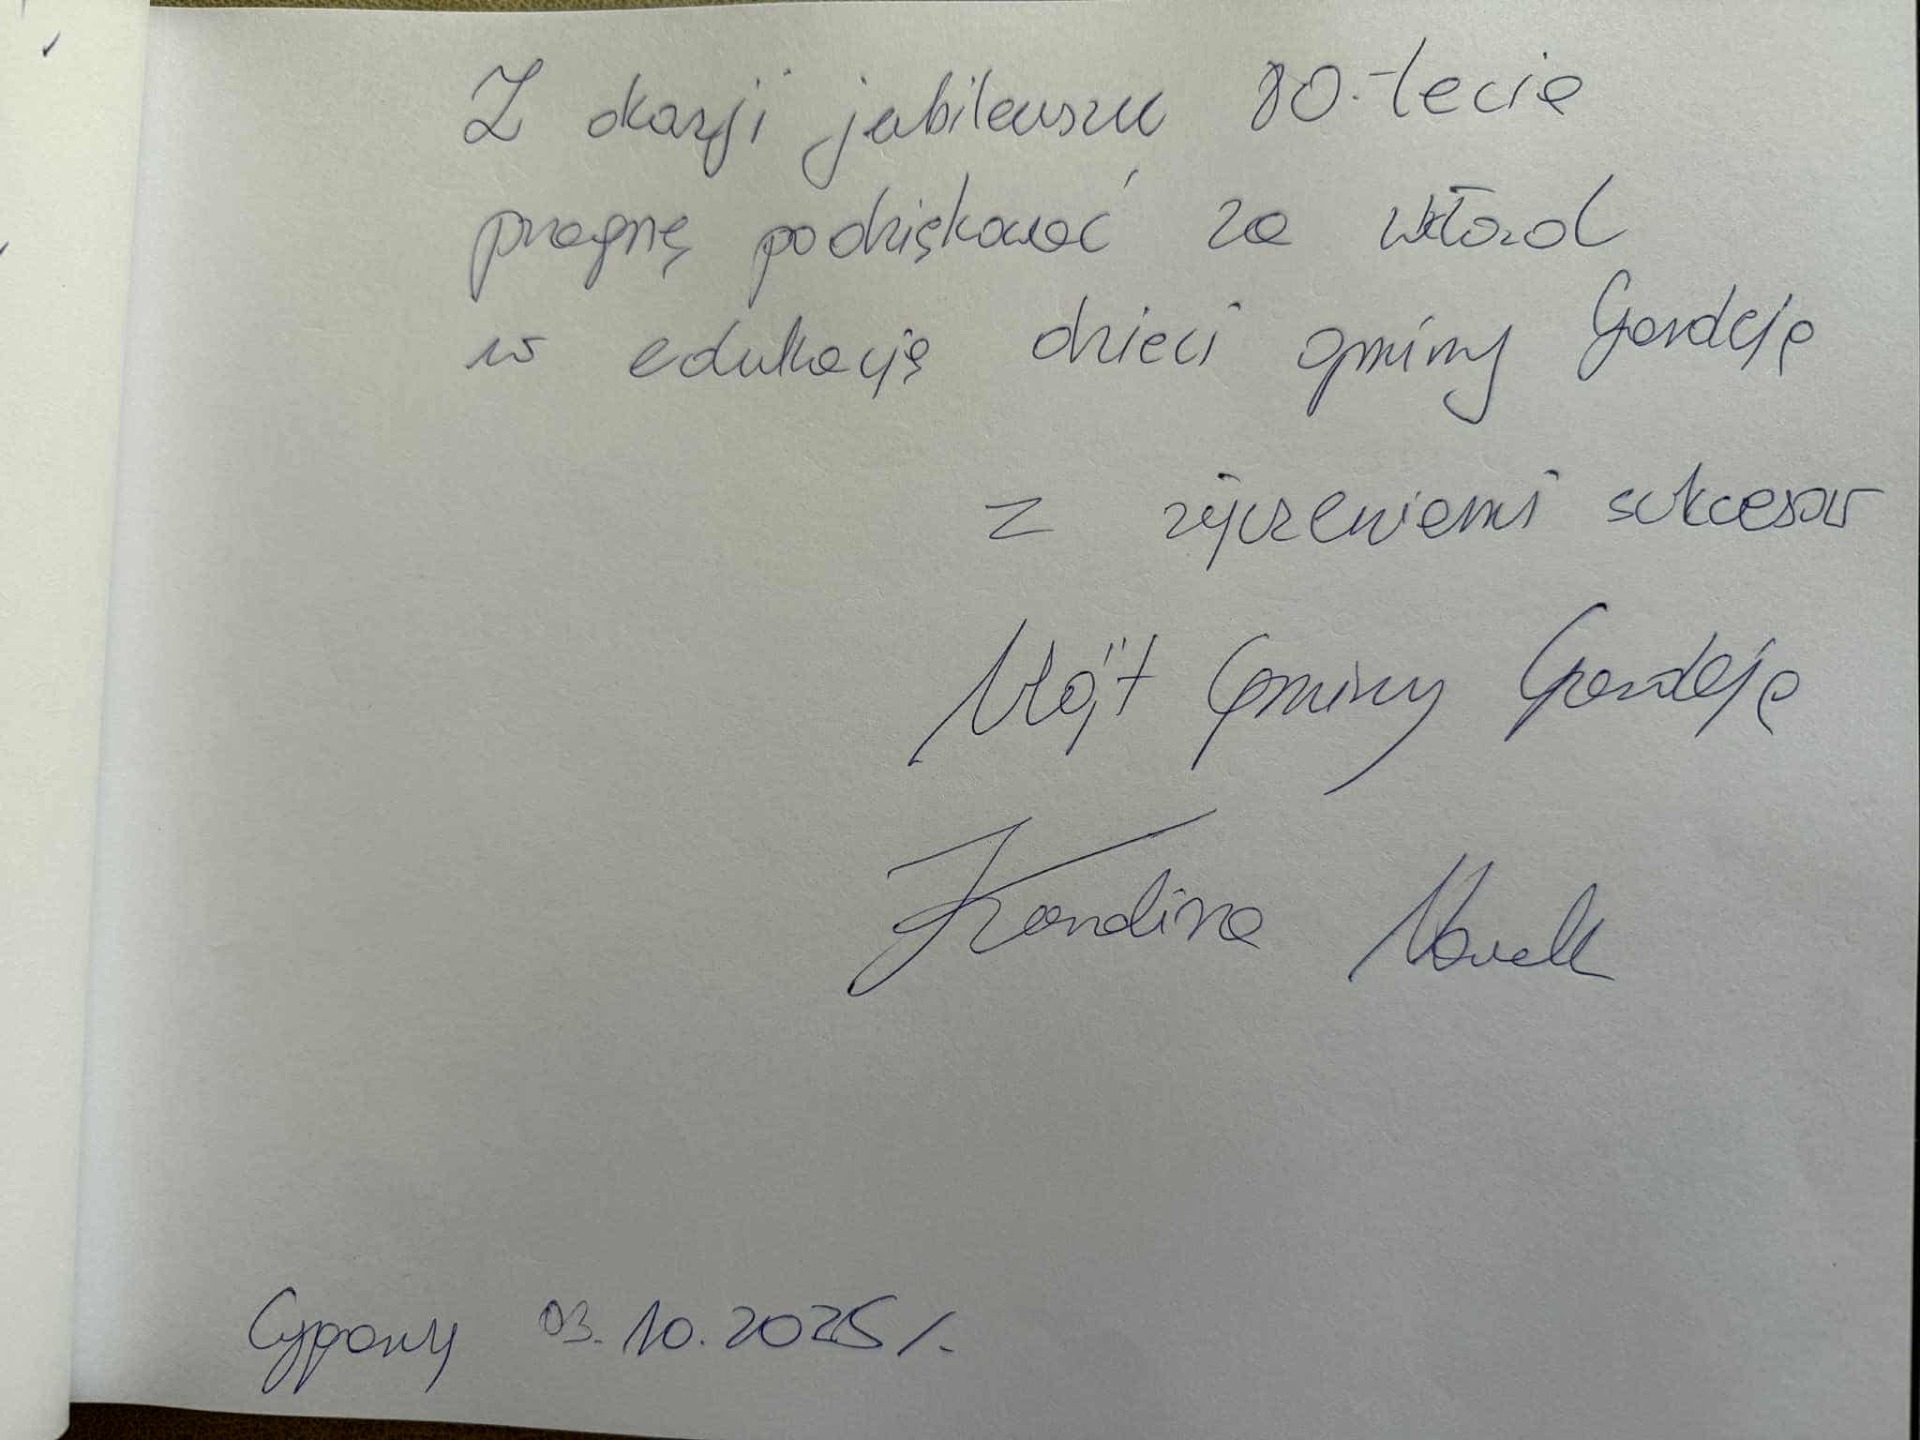 Z okazji jubileuszu 80-lecia
pragnę podziękować za wkład
w edukację dzieci gminy Gardeja
z życzeniami sukcesów
Wójt Gminy Gardeja
Nowak
Cygany 03.10.2025 r.